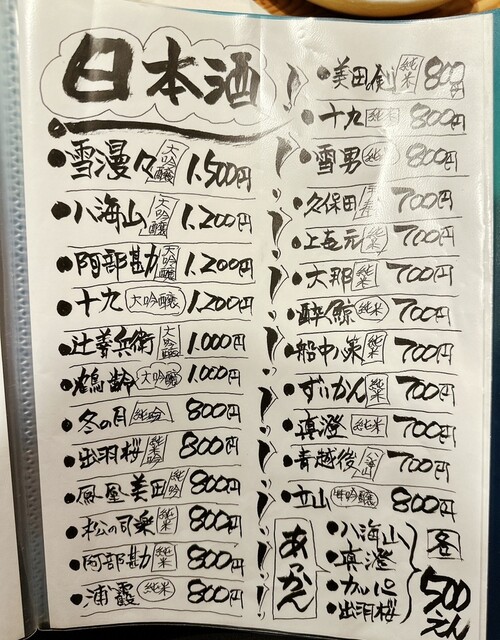 日本酒
雪漫々 大吟醸 1,500円
八海山 大吟醸 1,200円
阿部勘 大吟醸 1,200円
十九 大吟醸 1,200円
辻善兵衛 大吟醸 1,000円
鶴齢 大吟醸 1,000円
冬の月 純吟 800円
出羽桜 純米吟 800円
鳳凰美田 純吟 800円
松の司 楽 純米 800円
阿部勘 純米 800円
浦霞 純米 800円
美田 剣 純米 800円
十九 純米 800円
雪男 純米 800円
久保田 千寿 700円
上喜元 純米 700円
大那 純米 700円
酔鯨 純米 700円
船中八策 純米 700円
ずいかん 純米 700円
真澄 純米 700円
青越後 八海山 700円
立山 吟醸 800円
あつかん
八海山
真澄
出羽桜
各
500えん